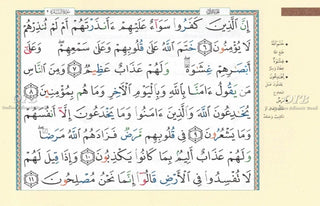 إِنَّ الَّذِينَ كَفَرُوا سَوَآءٌ عَلَيْهِمْ ءَأَنذَرْتَهُمْ أَمْ لَمْ تُنذِرْهُمْ
لَا يُؤْمِنُونَ ٦ خَتَمَ اللَّهُ عَلَىٰ قُلُوبِهِمْ وَعَلَىٰ سَمْعِهِمْ ۖ وَعَلَىٰ
أَبْصَٰرِهِمْ غِشَٰوَةٌ ۖ وَلَهُمْ عَذَابٌ عَظِيمٌ ٧ وَمِنَ النَّاسِ
مَن يَقُولُ ءَامَنَّا بِاللَّهِ وَبِالْيَوْمِ الْءَاخِرِ وَمَا هُم بِمُؤْمِنِينَ ٨
يُخَٰدِعُونَ اللَّهَ وَالَّذِينَ ءَامَنُوا وَمَا يَخْدَعُونَ إِلَّآ أَنفُسَهُمْ
وَمَا يَشْعُرُونَ ٩ فِى قُلُوبِهِم مَّرَضٌ فَزَادَهُمُ اللَّهُ مَرَضًا ۖ
وَلَهُمْ عَذَابٌ أَلِيمٌۢ بِمَا كَانُوا يَكْذِبُونَ ١٠ وَإِذَا قِيلَ لَهُمْ
لَا تُفْسِدُوا فِى الْأَرْضِ قَالُوٓا إِنَّمَا نَحْنُ مُصْلِحُونَ ١١